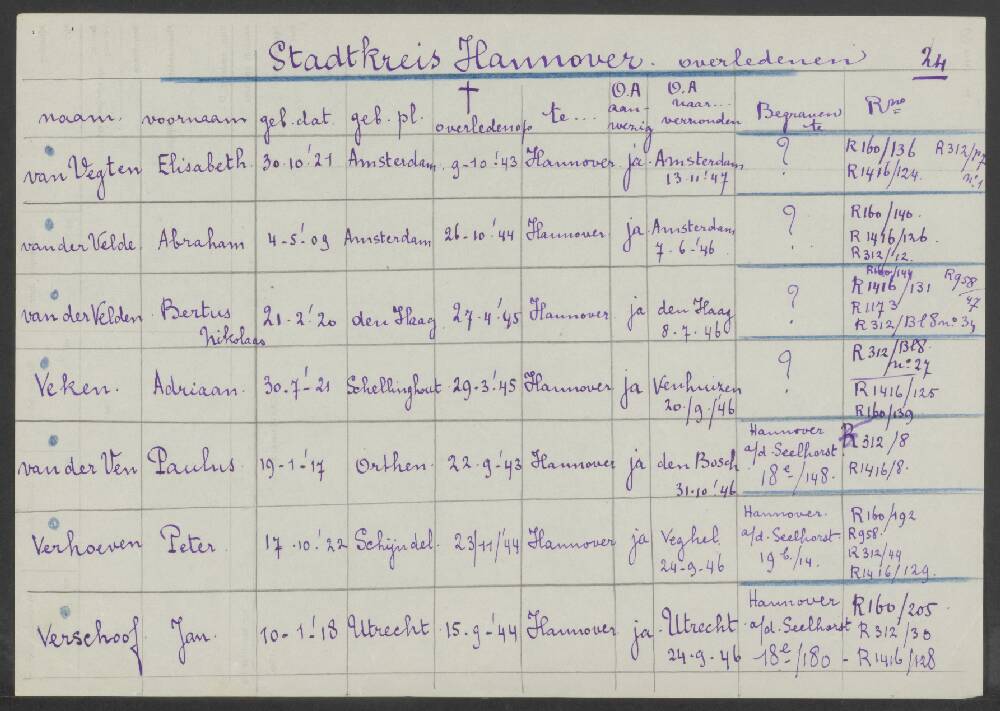 Stadtkreis Hannover. overledenen 24
naam. voornaam geb. dat. geb. pl. † overleden op te... O.A aan-wezig O.A naar... verzonden Begraven te R no
van Vegten Elisabeth. 30.10.'21 Amsterdam. 9-10.'43 Hannover. ja. Amsterdam 13.11.'47 ? R160/136 R312/
R1416/124. no 1
van der Velde. Abraham 4-5.'09 Amsterdam 26-10.'44 Hannover. ja. Amsterdam 7.6-'46 ? R160/140.
R1416/126.
R312/12.
van der Velden Bertus Nikolaas 21-2.'20 den Haag 27.4.'45 Hannover. ja den Haag 8.7.'46 ? R160/144
R1416/131 R958/47
R1173
R312/Bl 8 no 34
Veken. Adriaan. 30.7-'21 Schellinghout 29.3.'45 Hannover ja Venhuizen 20./9./'46 ? R312/Bl8.
no 27
R1416/125
R160/139
van der Ven Paulus. 19-1-'17 Orthen. 22.9-'43 Hannover ja den Bosch 31.10.'46 Hannover a/d. Seelhorst. 18e/148. R312/8
R1416/8.
Verhoeven Peter. 17.10.'22 Schijndel. 23/11/'44 Hannover ja Veghel. 24-9-46 Hannover. a/d. Seelhorst 19b/14. R160/192
R958.
R312/44
R1416/129.
Verschoof Jan. 10-1.'18 Utrecht. 15.9-'44 Hannover ja. Utrecht 24.9-46 Hannover a/d. Seelhorst 18e/180 R160/205
R312/30
R1416/128